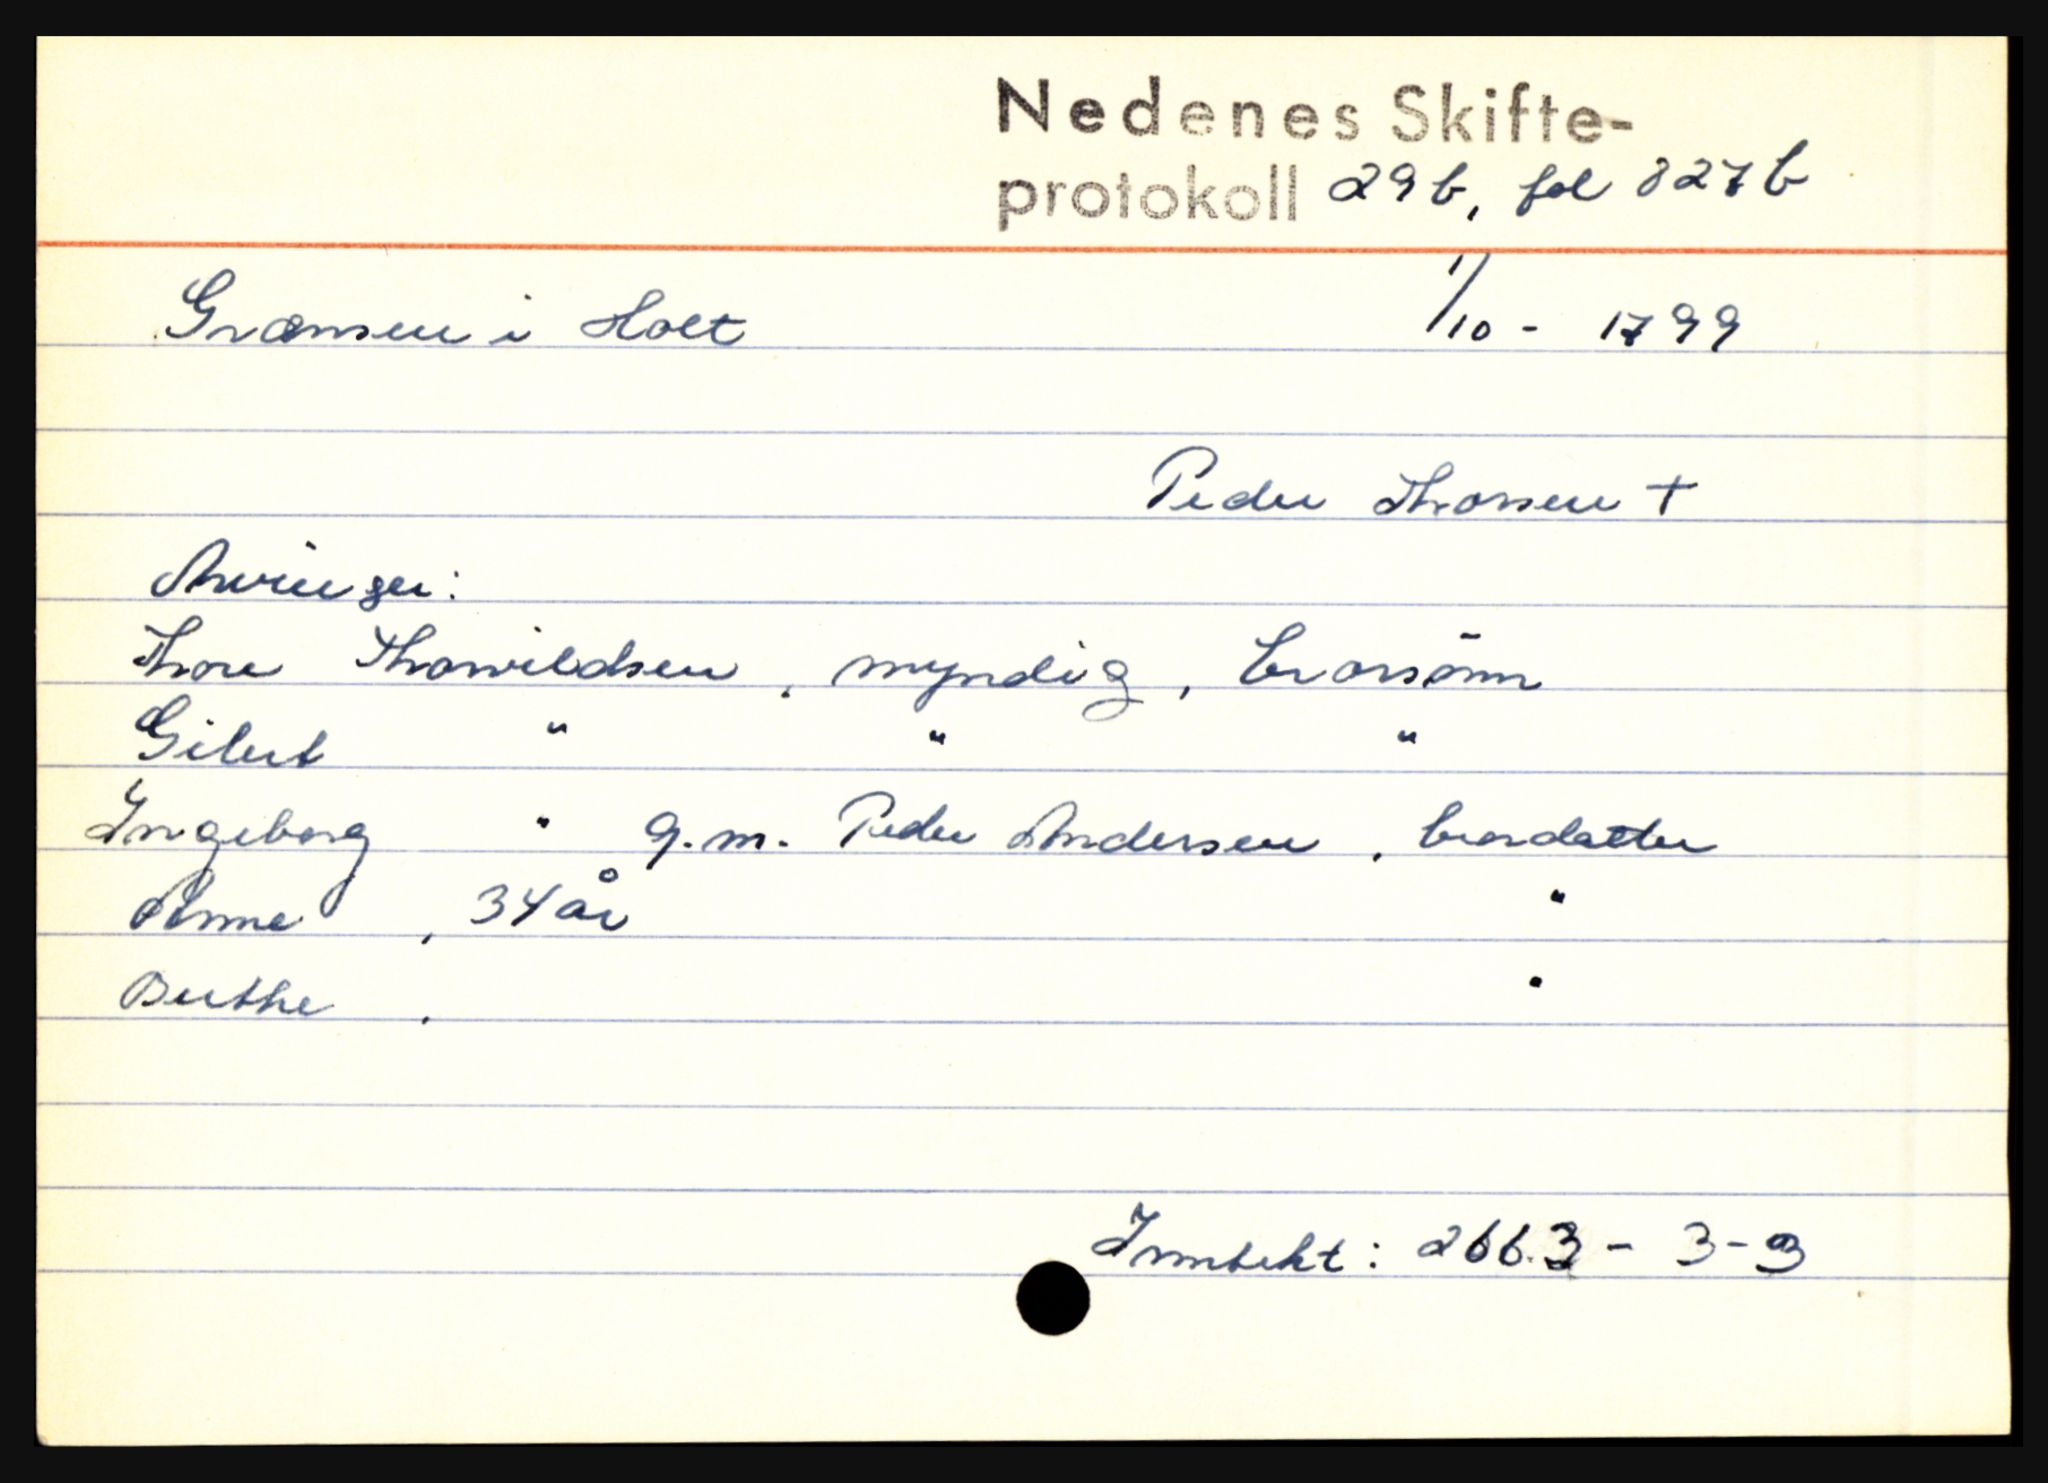 Nedenes Skifte-
protokoll 29b, fol 827b
Grænsen i Holt 1/10 - 1799
Peder Thorsen +
Arvinger:
Thore Thorvildsen, myndig, brorsønn
Gibert " " "
Ingeborg " g.m. Peder Andersen, brordatter
Anne, 34 år "
Berthe, "
Inntekt: 2663 - 3 - 3